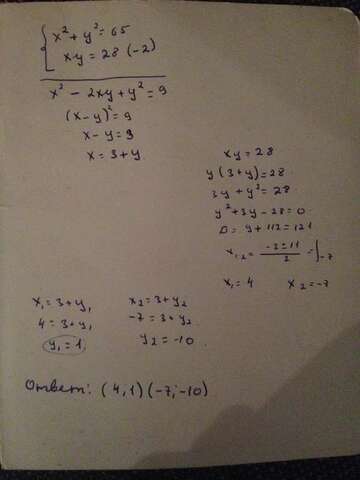 x² + y² = 65
xy = 28 (-2)
x² - 2xy + y² = 9
(x - y)² = 9
x - y = 3
x = 3 + y
xy = 28
y(3 + y) = 28
3y + y² = 28
y² + 3y - 28 = 0
D = y + 112 = 121
x₁,₂ = (-3 ± 11)/2 = [-7
x₁ = 4 x₂ = -7
x₁ = 3 + y₁ x₂ = 3 + y₂
4 = 3 + y₁ -7 = 3 + y₂
y₁ = 1 y₂ = -10
Ответ: (4, 1) (-7; -10)